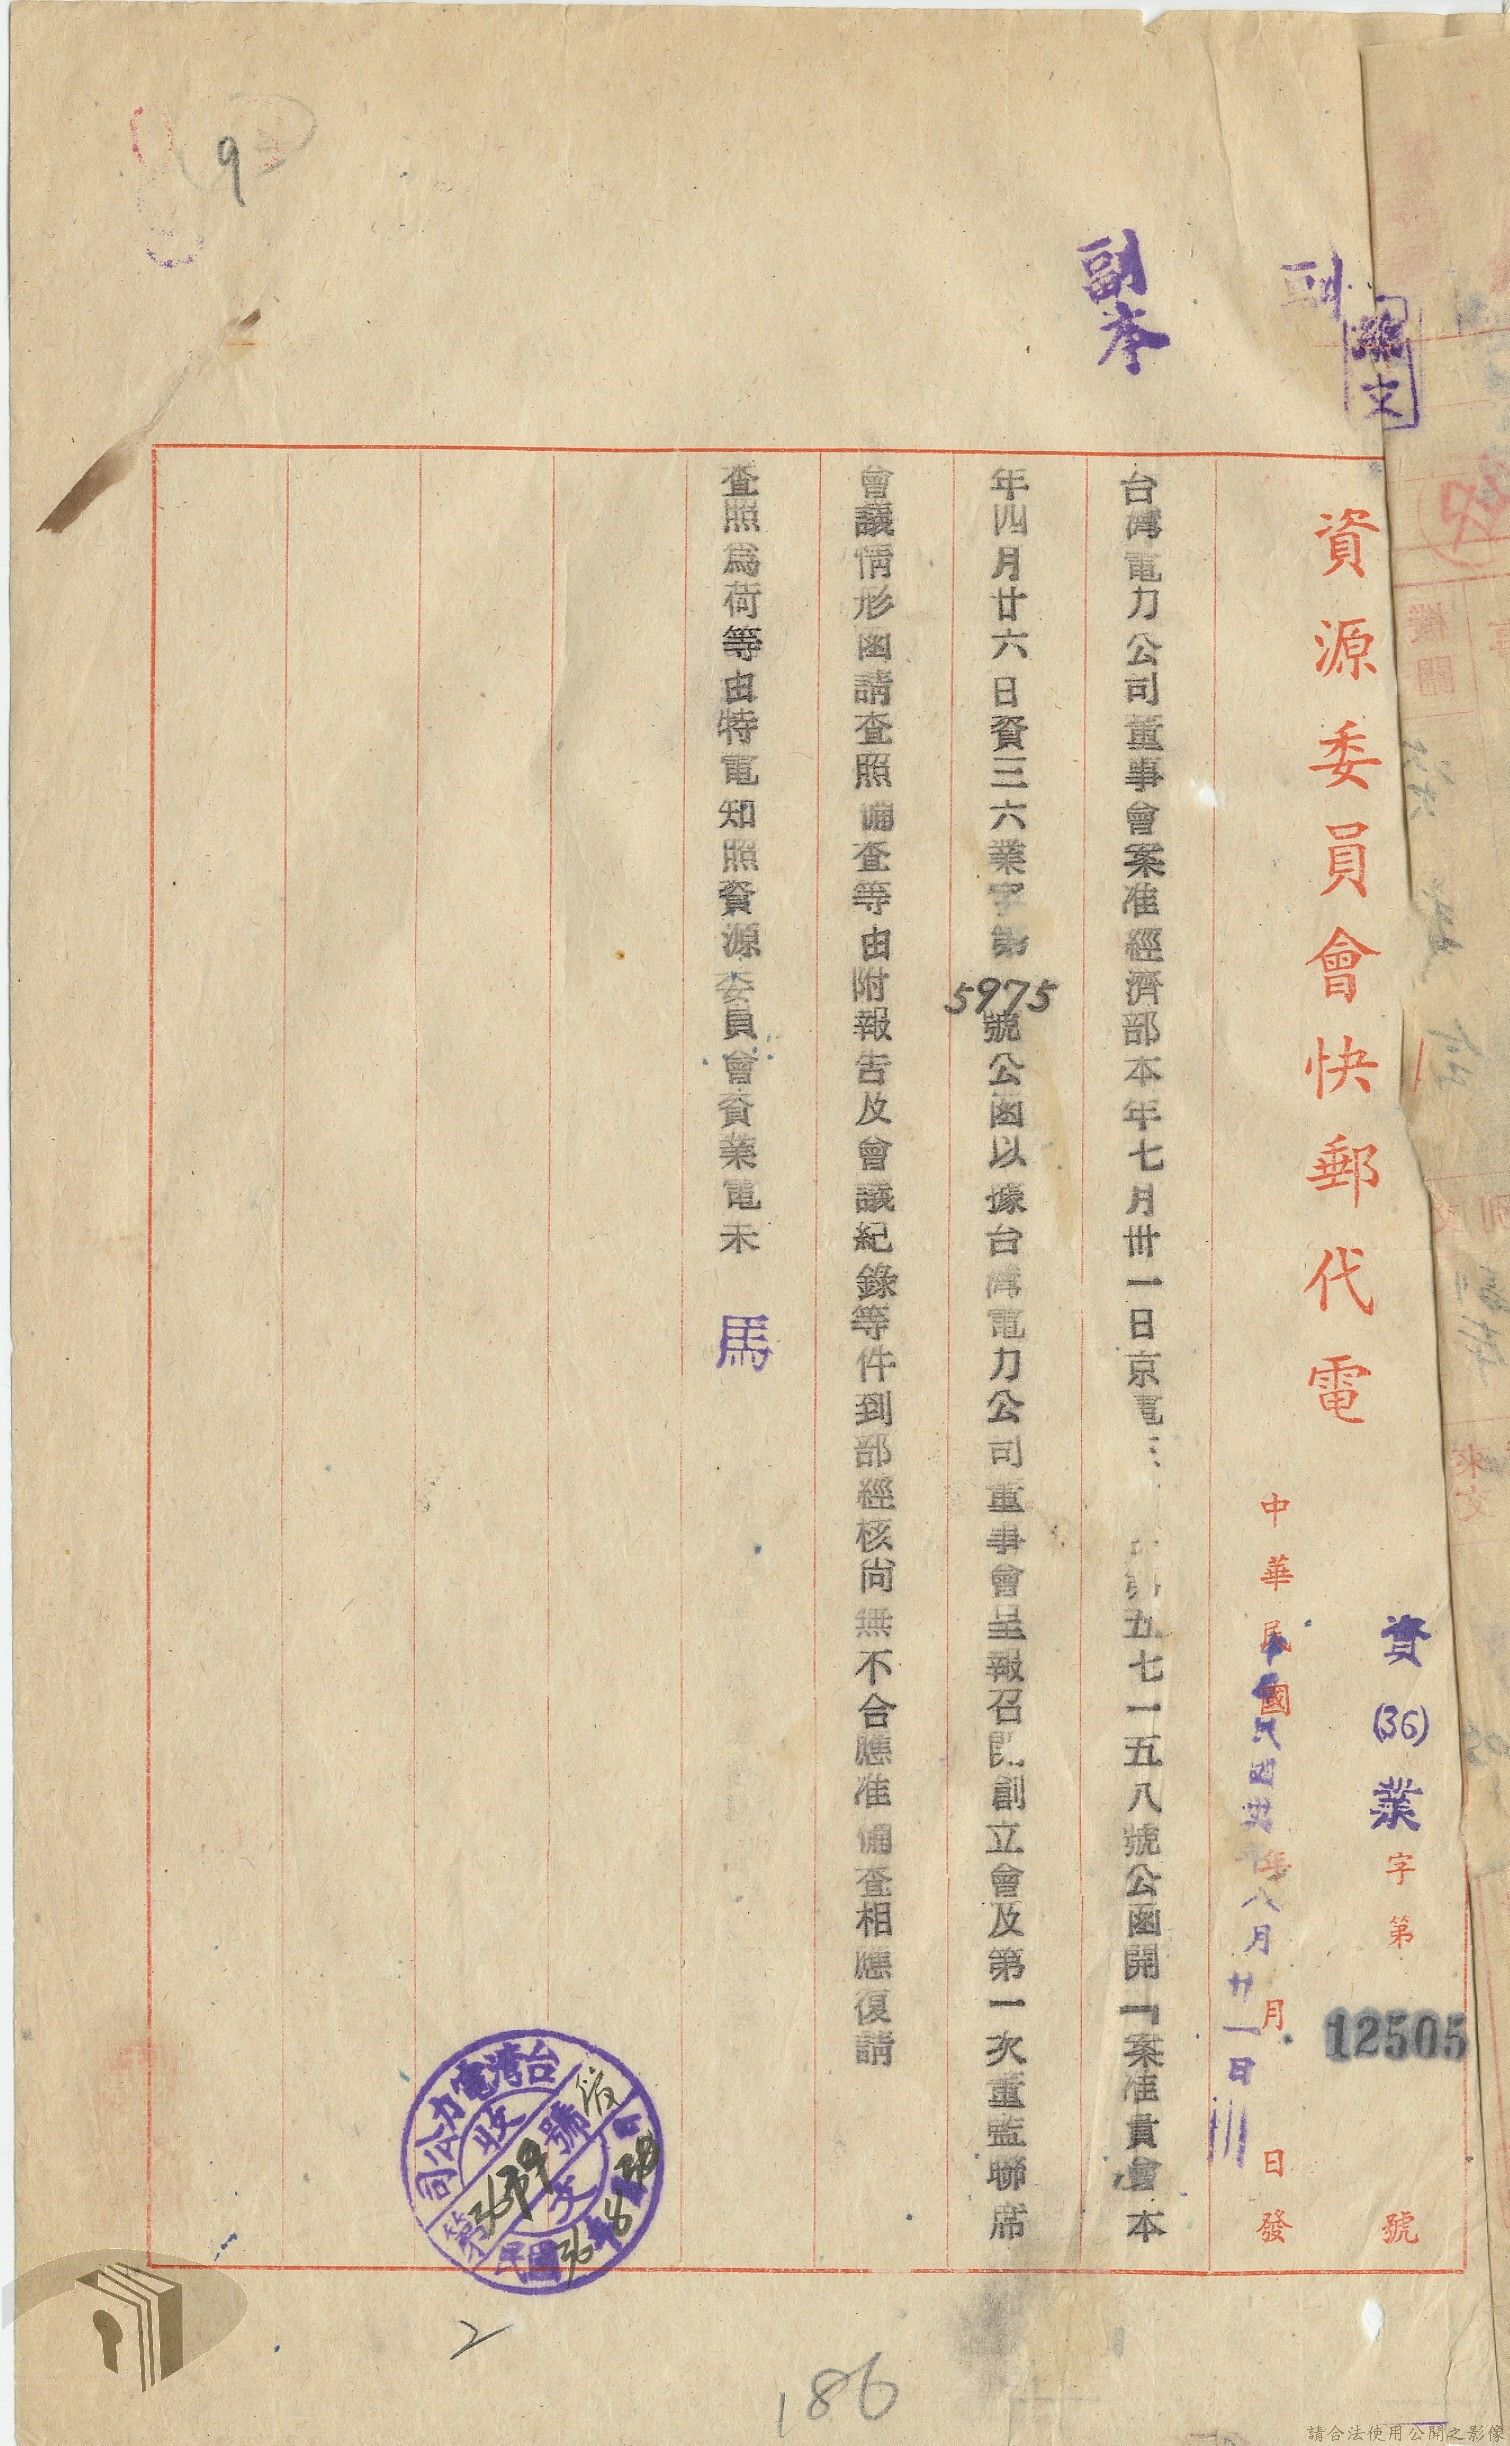 資源委員會快郵代電
資(36)業字第12505號
中華民國 年 月 日發
八月廿一日
副本
台灣電力公司董事會案准經濟部本年七月卅一日京電三 第五七一五八號公函開「案准貴會本
年四月廿六日資三六業字第5975號公函以據台灣電力公司董事會呈報召開創立會及第一次董監聯席
會議情形函請查照備查等由附報告及會議紀錄等件到部經核尚無不合應准備查相應復請
查照為荷等由特電知照資源委員會資業電未 馬
台灣電力公司
收文
第3679號
民國36年8月30日
9
2
186
請合法使用公開之影像